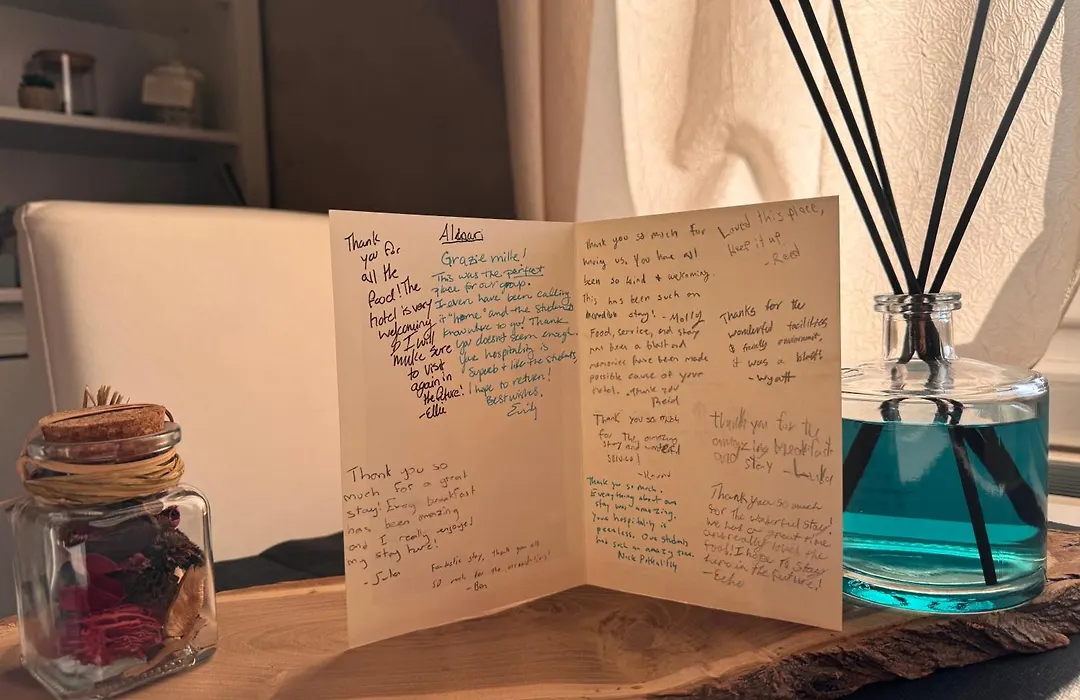 Thank
you for
all the
food! The
hotel is very
welcoming
& I will
make sure
to visit
again in
the future!
-Ellie
Grazie mille!
This was the perfect
place for our group.
I even have been calling
it "home" and the students
know to go! Thank
you doesn't seem enough.
Your hospitality is
superb & like the students,
I hope to return!
Best wishes,
Emily
Thank you so
much for a great
stay! Every breakfast
has been amazing
and I really enjoyed
my stay here!
Fantastic stay, thank you all
so much for the
-Ben
Thank you so much for
having us. You have all
been so kind & welcoming.
This has been such an
incredible stay! -Molly
Food, service, and stay
just been a blast and
memories have been made
possible cause of your
hotel. Thank you
Reid
Thank you so much
for the amazing
stay and wonderful
service!
Thank you so much.
Everything about our
stay was amazing.
Your hospitality is
peerless. Our students
had such an amazing time.
Nick
Loved this place,
keep it up
-Reed
Thanks for the
wonderful facilities
& family environment,
it was a blast
-Wyatt
Thank you for the
amazing breakfast
and stay
Thank you so much
for the wonderful stay!
We had a great time
and really loved the
food! I hope to stay
here in the future!
-Echo